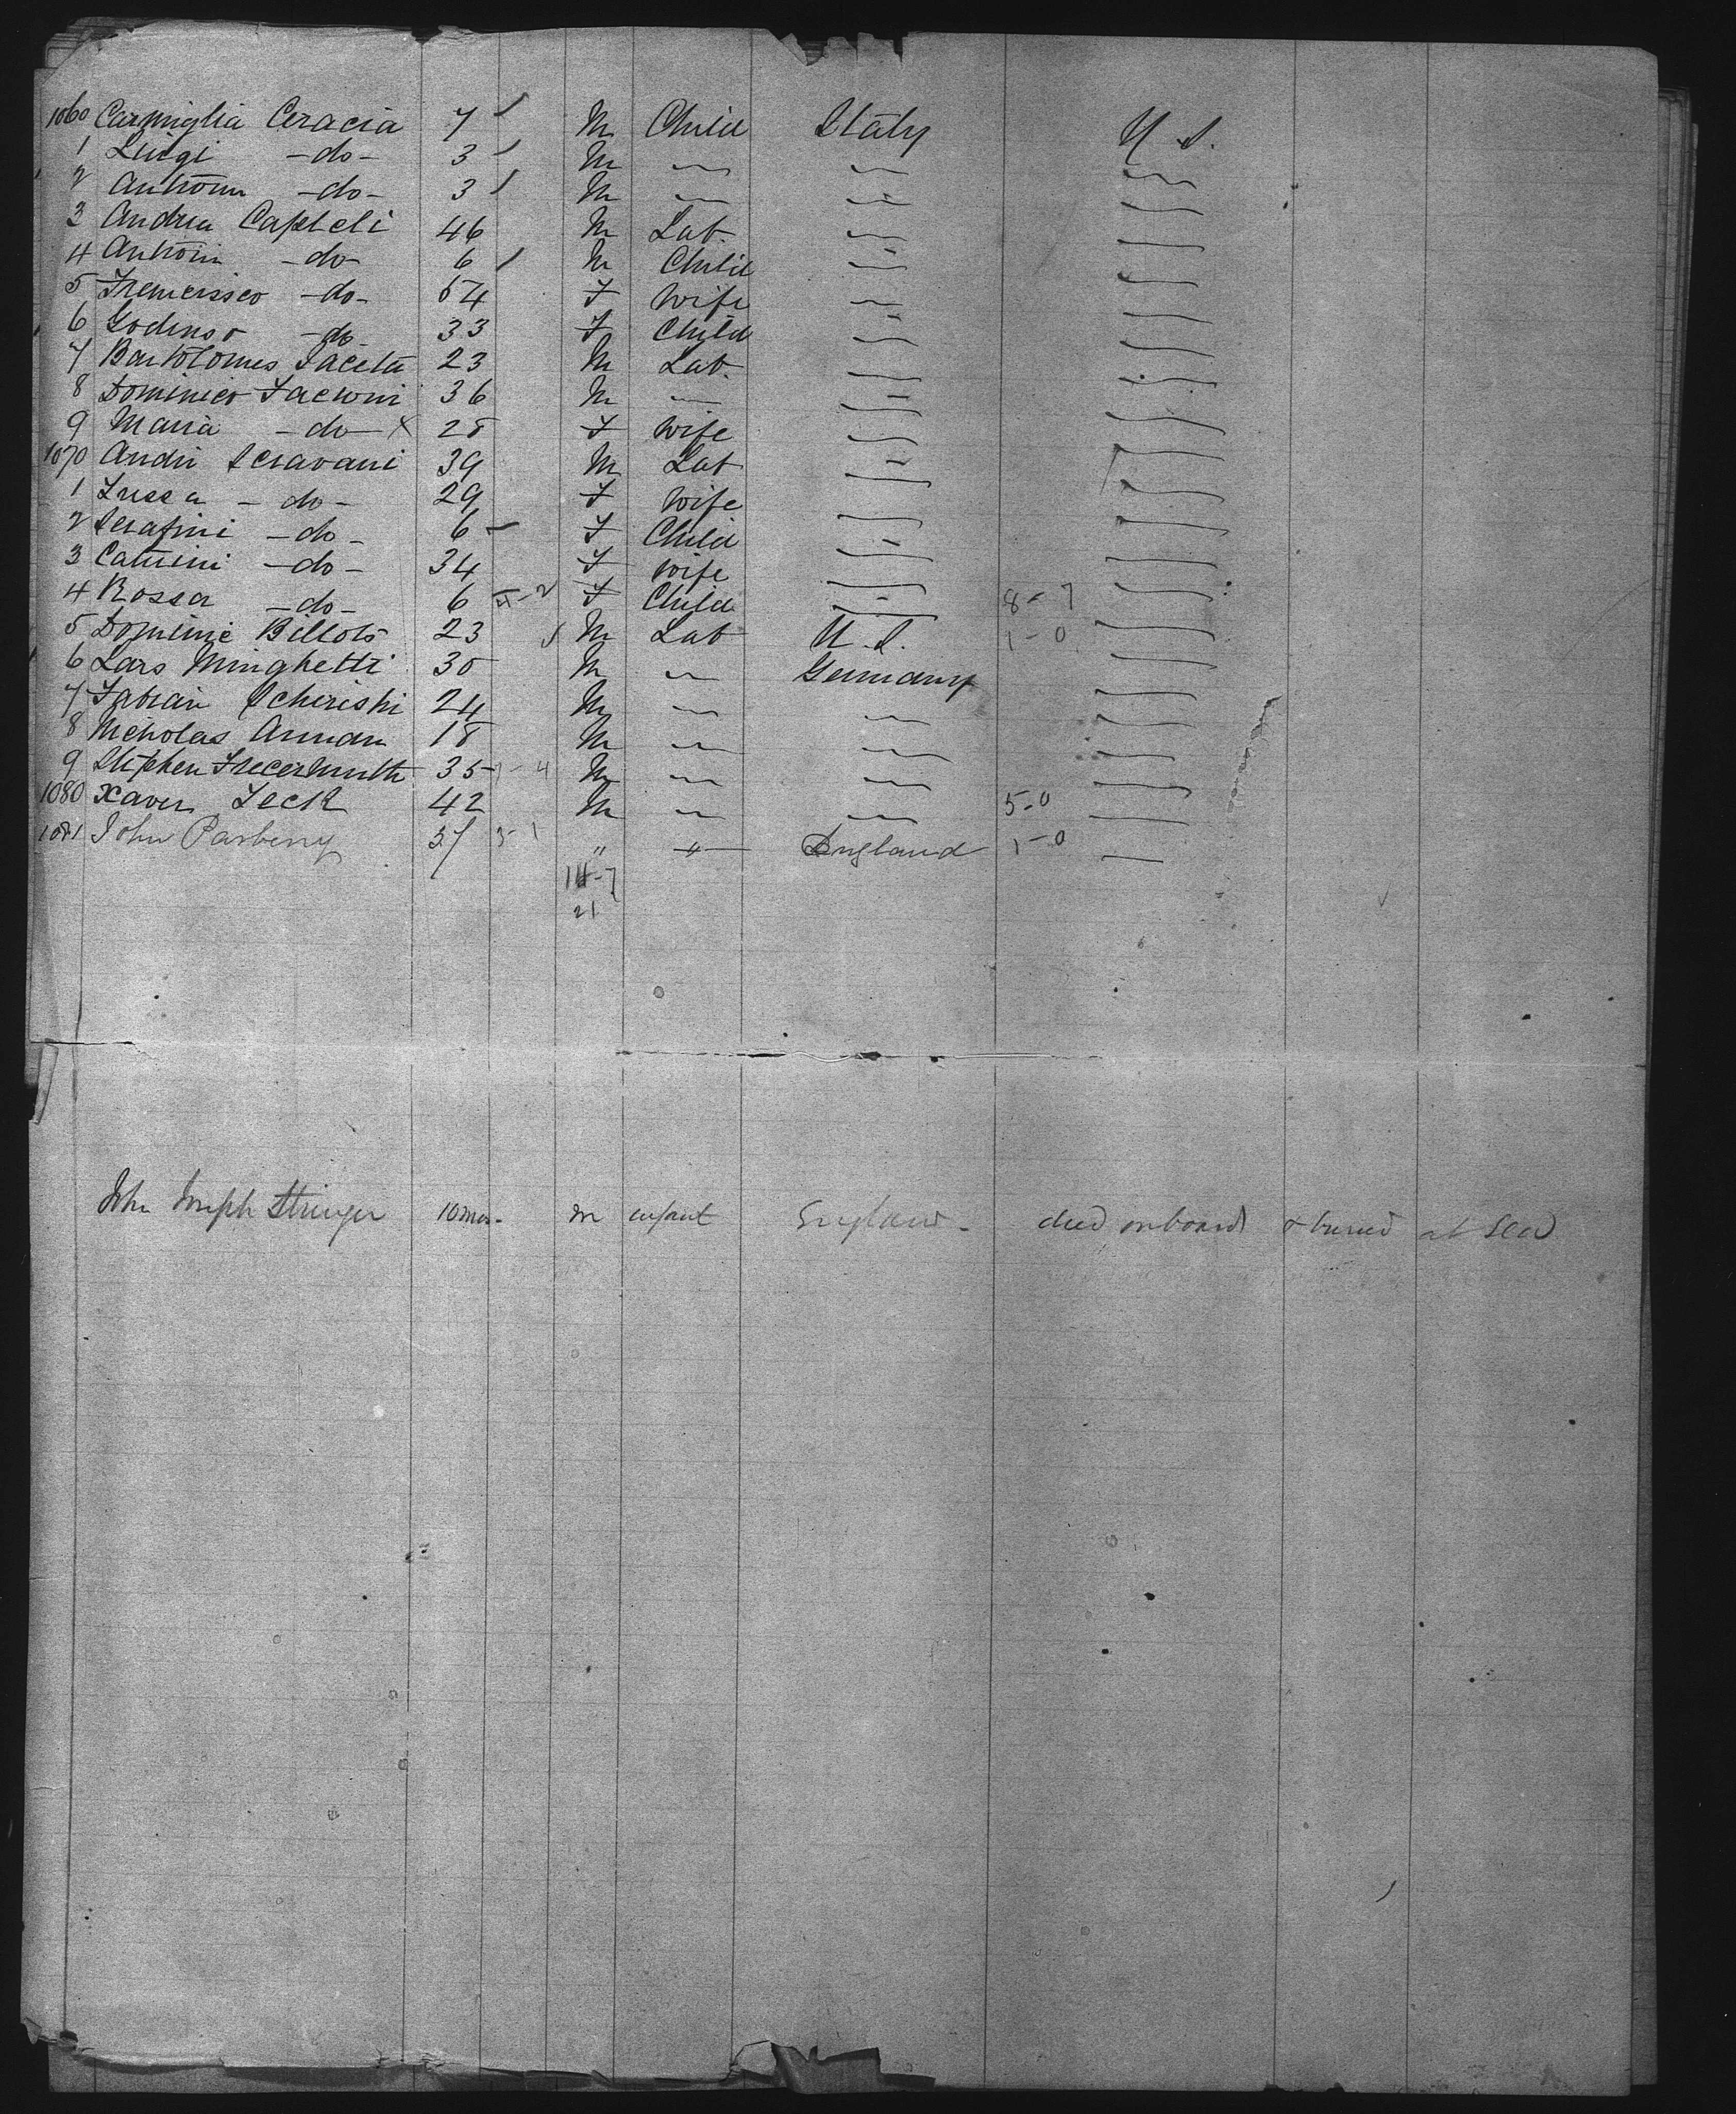 1060 Carmiglia Ceracia 7 M Child Italy U S.
1 Luigi -do- 3 M
2 Antonn -do- 3 M
3 Andrea Capteli 46 M Lab.
4 Antoin -do- 6 M Child
5 -do- 54 F Wife
6 Godenso -do- 33 F Child
7 Bartolomus Saceta 23 M Lab.
8 Dominico Facioni 36 M
9 Maria -do- x 28 F Wife
1070 Andri Scravani 39 M Lab
1 -do- 29 F Wife
2 Serafini -do- 6 F Child
3 Catirini -do- 34 F Wife
4 Rossa -do- 6 4-2 F Child 8-7
5 Dominic Billots 23 M Lab U.S. 1-0
6 Lars Minghetti 30 M Germany
7 Fabian Scherishi 24 M
8 Nicholas 18 M
9 Stephen 35 M
1080 Xaver Zeck 42 M 5-0
1081 John Parberry 37 3-1 " " England 1-0
14-7
21
John Joseph Stringer 10 mos. m infant England - died on board & buried at sea